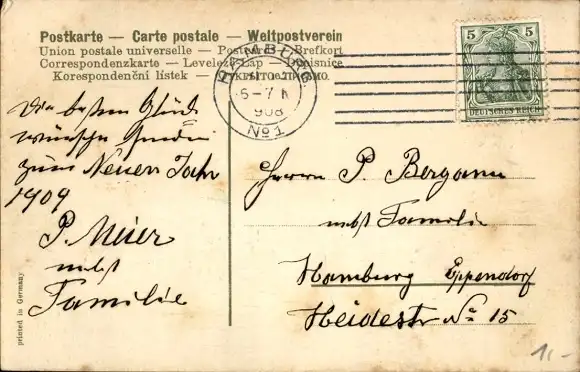 Postkarte — Carte postale — Weltpostverein
Union postale universelle — Brefkort
Correspondenzkarte — Levelező-Lap —
Korespondenční lístek —
HAMBURG
6-7 N
908
No 1
5 5
DEUTSCHES REICH
Die besten Glück
wünsche
zum Neuen Jahr
1909
P. Meier
nebst
Familie
Herrn P. Bergann
nebst Familie
Hamburg Eppendorf
Heidestr No 15
printed in Germany